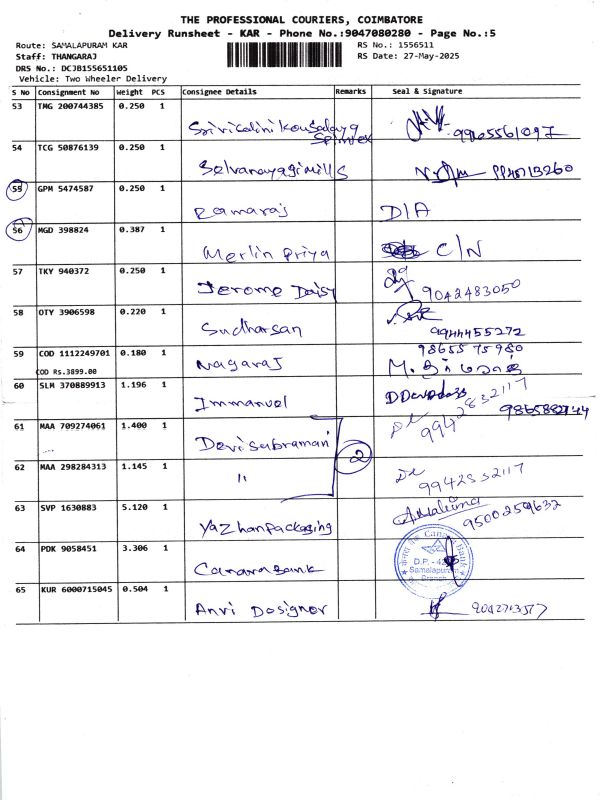 THE PROFESSIONAL COURIERS, COIMBATORE
Delivery Runsheet - KAR - Phone No.:9047080280 - Page No.:5
Route: SAMALAPURAM KAR
RS No.: 1556511
Staff: THANGARAJ
RS Date: 27-May-2025
DRS No.: DCJB155651105
Vehicle: Two Wheeler Delivery
S No Consignment No Weight PCS Consignee Details Remarks Seal & Signature
53 TMG 200744385 0.250 1
54 TCG 50876139 0.250 1
Selvanayagi Mills
55 GPM 5474587 0.250 1
Ramaraj D/A
56 MGD 398824 0.387 1
Merlin Priya C/N
57 TKY 940372 0.250 1
Jerome Daisy 9042483050
58 OTY 3906598 0.220 1
Sudharsan 9944455272
59 COD 1112249701 0.180 1 9865575980
COD Rs.3899.00
Nagaraj
60 SLM 370889913 1.196 1
Immanuel
61 MAA 709274061 1.400 1 9942832117
Devi Subramani
2
62 MAA 298284313 1.145 1
" 9942832117
63 SVP 1630883 5.120 1
Yazhanpackaging 9500259632
64 PDK 9058451 3.306 1
Canara Bank
Canara Bank
Samalapuram
Branch
65 KUR 6000715045 0.504 1
Anvi Designer